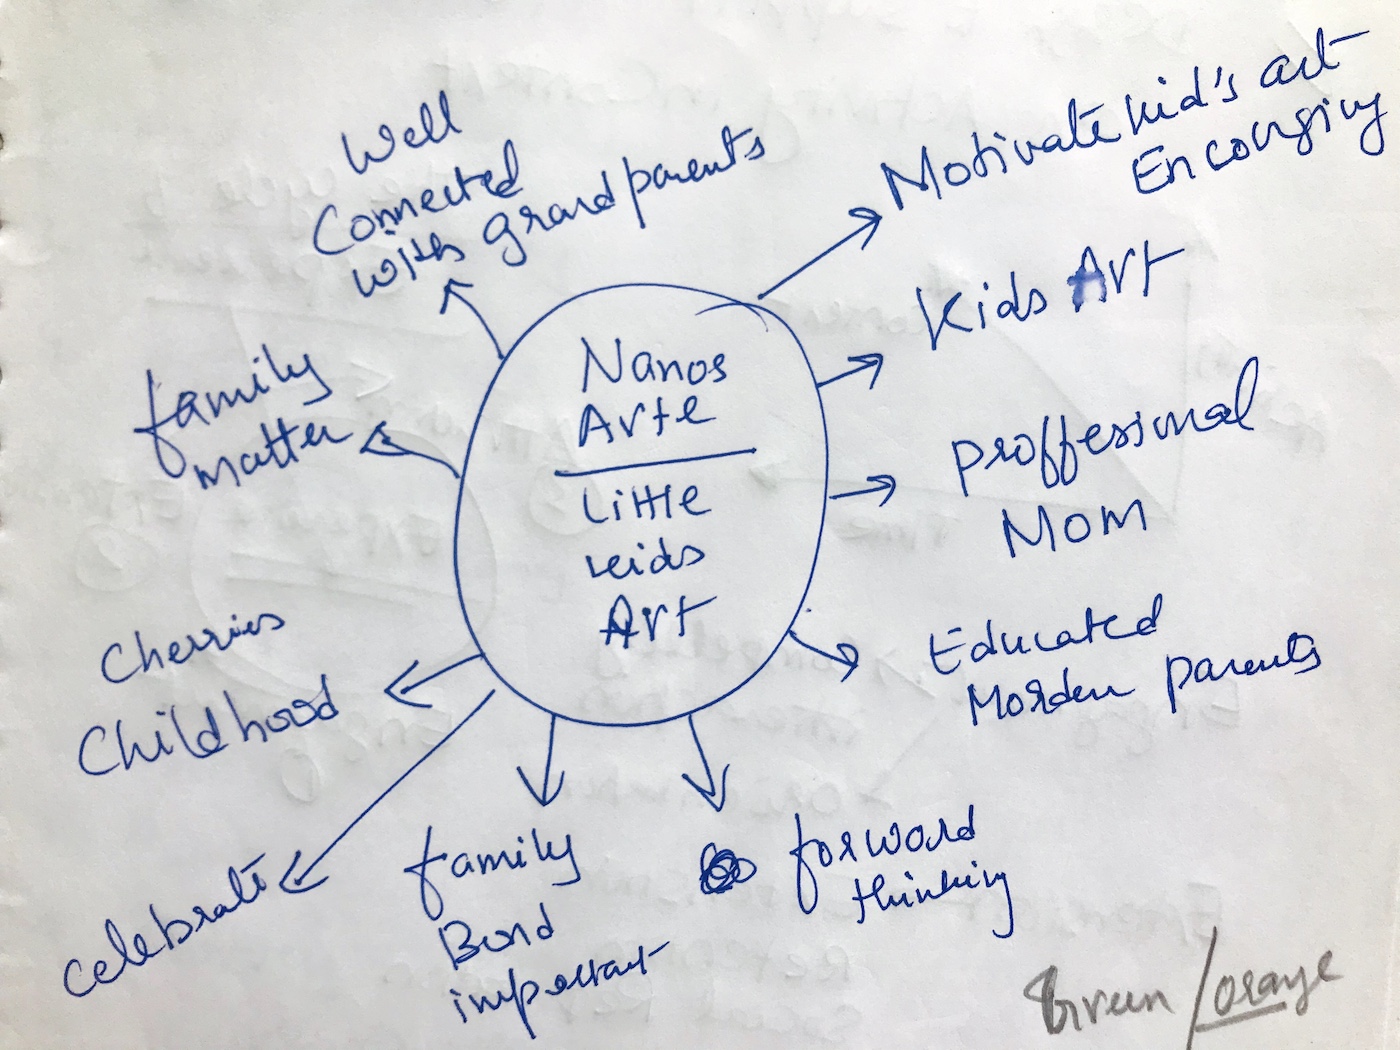 Well
Connected
with grandparents
Motivate kid's art
Encourging
Kids Art
Nanos
Arte
Little
kids
Art
family
matter
proffessional
Mom
Cherries
Childhood
Educated
Morden parents
celebrate
family
Bond
important
forword
thinking
Green / orange